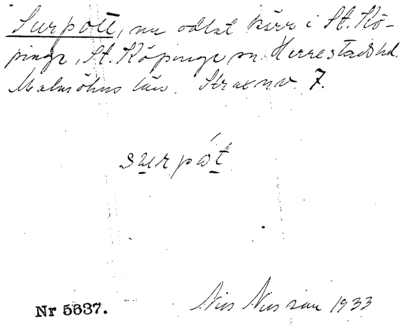 Surpott, nu odlat kärr i St. Kö-
pinge, St. Köpinge sn. Herrestads hd.
Malmöhus län. Strax nv. 7.
surpåt
Nr 5637.
Nils Nilsson 1933